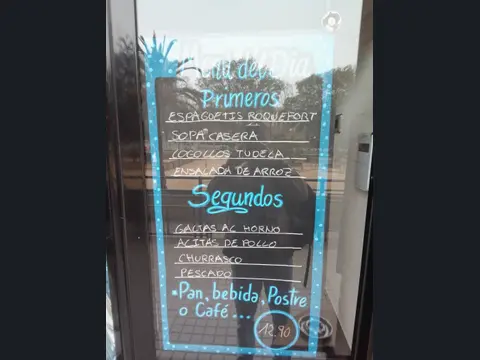 Menú del Día
Primeros
ESPAGUETIS ROQUEFORT
SOPA CASERA
COGOLLOS TUDELA
ENSALADA DE ARROZ
Segundos
GALTAS AL HORNO
ALITAS DE POLLO
CHURRASCO
PESCADO
*Pan, bebida, Postre
o Café...
12.90